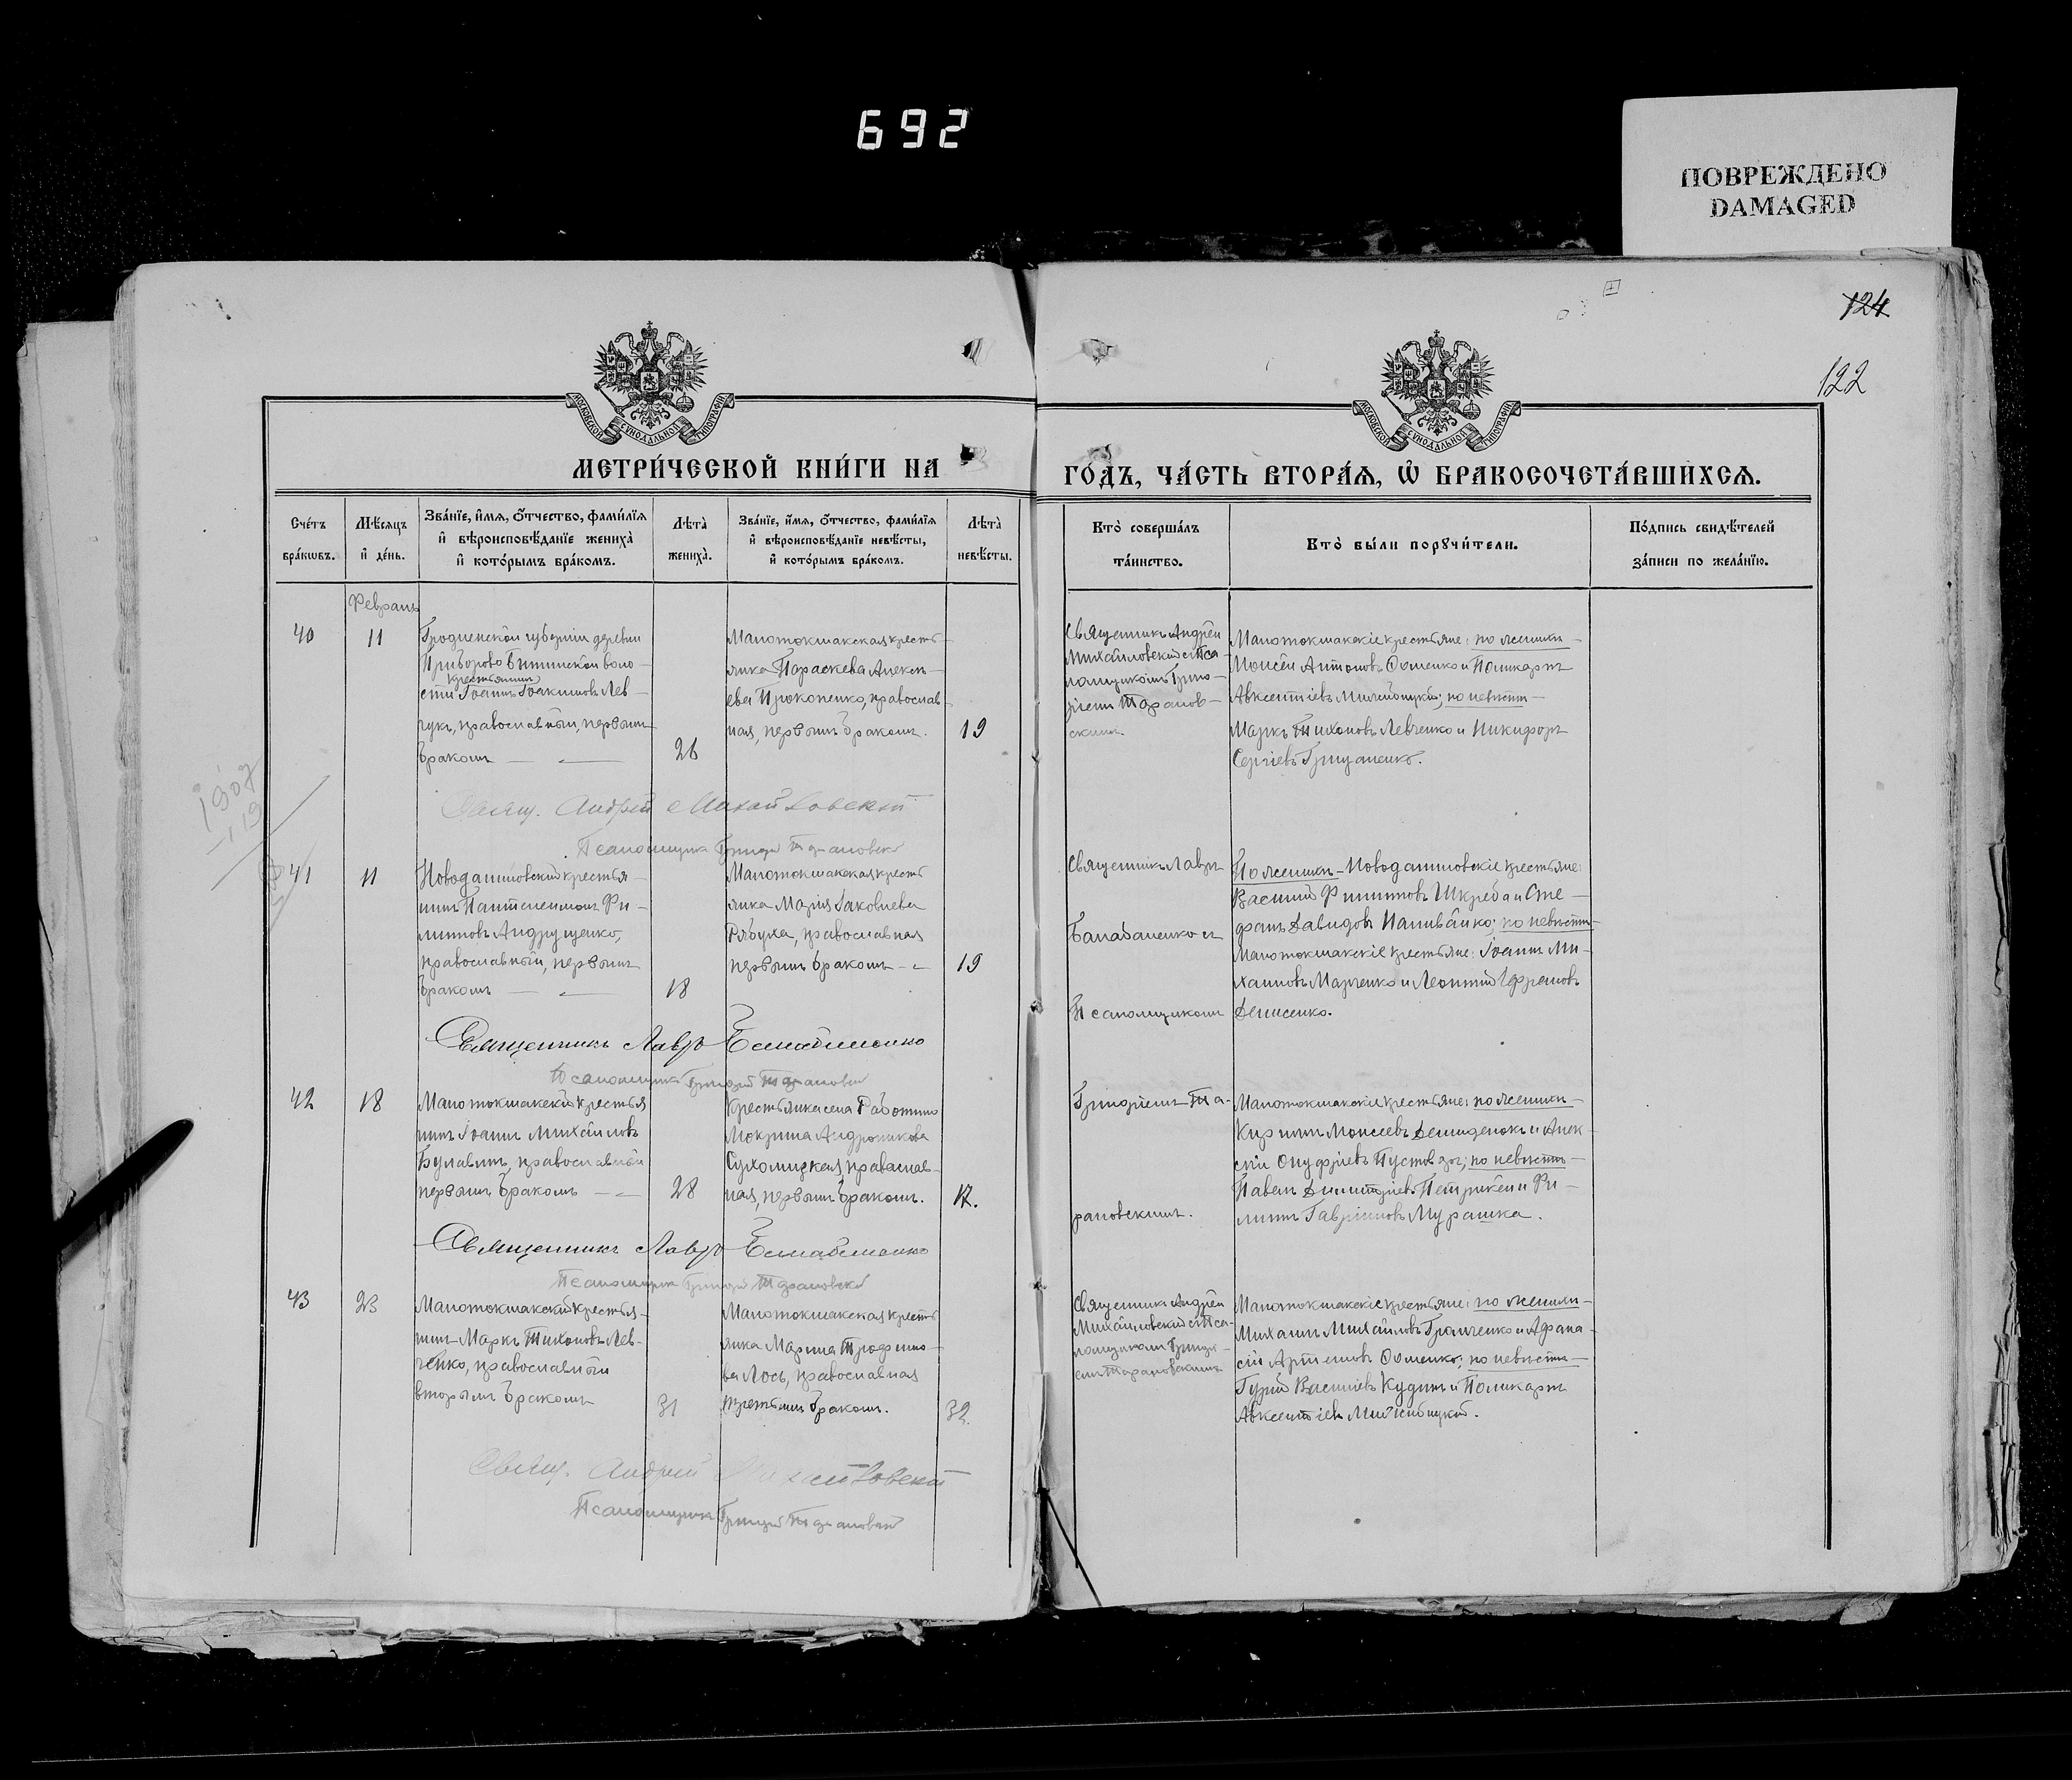 692
ПОВРЕЖДЕНО
DAMAGED
124
122
МОСКОВСКОЙ СѴНОДАЛЬНОЙ ТИПОГРАФІИ
МОСКОВСКОЙ СѴНОДАЛЬНОЙ ТИПОГРАФІИ
МЕТРИ́ЧЕСКОЙ КНИ́ГИ НА
ГО́ДЪ, ЧА́СТЬ ВТОРА́Я, Ѡ БРАКОСОЧЕТА́ВШИХСЯ.
Сче́тъ бра́кѡвъ.
Мѣ́сяцъ и҆ де́нь.
Зва́нїе, и҆́мѧ, ѻ҆́тчество, фами́лїѧ
и҆ вѣроисповѣ́данїе жениха̀
и҆ кото́рымъ бра́комъ.
Лѣта̀ жениха̀.
Зва́нїе, и҆́мѧ, ѻ҆́тчество, фами́лїѧ
и҆ вѣроисповѣ́данїе невѣ́сты,
и҆ кото́рымъ бра́комъ.
Лѣта̀ невѣ́сты.
Кто̀ соверша́лъ та́инство.
Кто̀ бы́ли порꙋчи́тели.
По́дпись свидѣ́телей
за́писи по жела́нїю.
Февраль
40
11
Гродненской губерніи деревни
Приборово Битинской воло-
крестьянинъ
сти Іоаннъ Іоакимовъ Лев-
чукъ, православный, первымъ
бракомъ
26
Малотокмакская кресть-
янка Параскева Алексѣ-
ева Прокопенко, православ-
ная, первымъ бракомъ.
19
Священникъ Андрей
Михайловскій съ Пса-
ломщикомъ Григо-
ріемъ Таранов-
скимъ.
Малотокмакскіе крестьяне: по женихѣ-
Моисей Антоновъ Ониенко и Поликарпъ
Авксентіевъ; по невѣстѣ-
Маркъ Тихоновъ Левченко и Никифоръ
Сергіевъ Грицаненко.
Свящ. Андрей Михайловскій
Псаломщикъ Григорій Тарановскій
1907
41
11
Новоданиловскій крестья-
нинъ Пантелеимонъ Фи-
липповъ Андрущенко,
православный, первымъ
бракомъ
18
Малотокмакская кресть
янка Марія Іаковлева
Рябуха, православная
первымъ бракомъ
19
Священникъ Лавръ
Балабаненко съ
Псаломщикомъ
По женихѣ-Новоданиловскіе крестьяне:
Василій Филипповъ Шкреба и Сте-
фанъ Давидовъ Наливайко; по невѣстѣ-
Малотокмакскіе крестьяне: Іоаннъ Ми-
хаиловъ Марченко и Леонтій Ефремовъ
Денисенко.
Священникъ Лавръ Балабаненко
Псаломщикъ Григорій Тарановскій
42
18
Малотокмакскій крестья
нинъ Іоаннъ Михайловъ
Булавинъ, православный
первымъ бракомъ
28
Крестьянка села Работино
Мокрина Андроникова
Сухомлцкая, православ-
ная, первымъ бракомъ.
17.
Григоріемъ Та-
рановскимъ.
Малотокмакскіе крестьяне: по женихѣ-
Кириллъ Моисеевъ Демиденокъ и Алек-
сій Онуфріевъ; по невѣстѣ-
Павелъ Димитріевъ Петрикей и Фи-
липпъ Гавріиловъ Мурашка.
Священникъ Лавръ Балабаненко
Псаломщикъ Григорій Тарановскій
43
23
Малотокмакскій крестья-
нинъ Маркъ Тихоновъ Лев-
ченко, православный
вторымъ бракомъ
31
Малотокмакская кресть
янка Марина Трофимо-
ва Лось, православная
третьимъ бракомъ.
32.
Священникъ Андрей
Михайловскій съ Пса-
ломщикомъ Григорі-
емъ Тарановскимъ
Малотокмакскіе крестьяне: по женихѣ-
Михаилъ Михайловъ Громченко и Афана-
сій Артемовъ Ониенко; по невѣстѣ-
Гурій Василіевъ Кудинъ и Поликарпъ
Авксентіевъ
Свящ. Андрей Михайловскій
Псаломщикъ Григорій Тарановскій